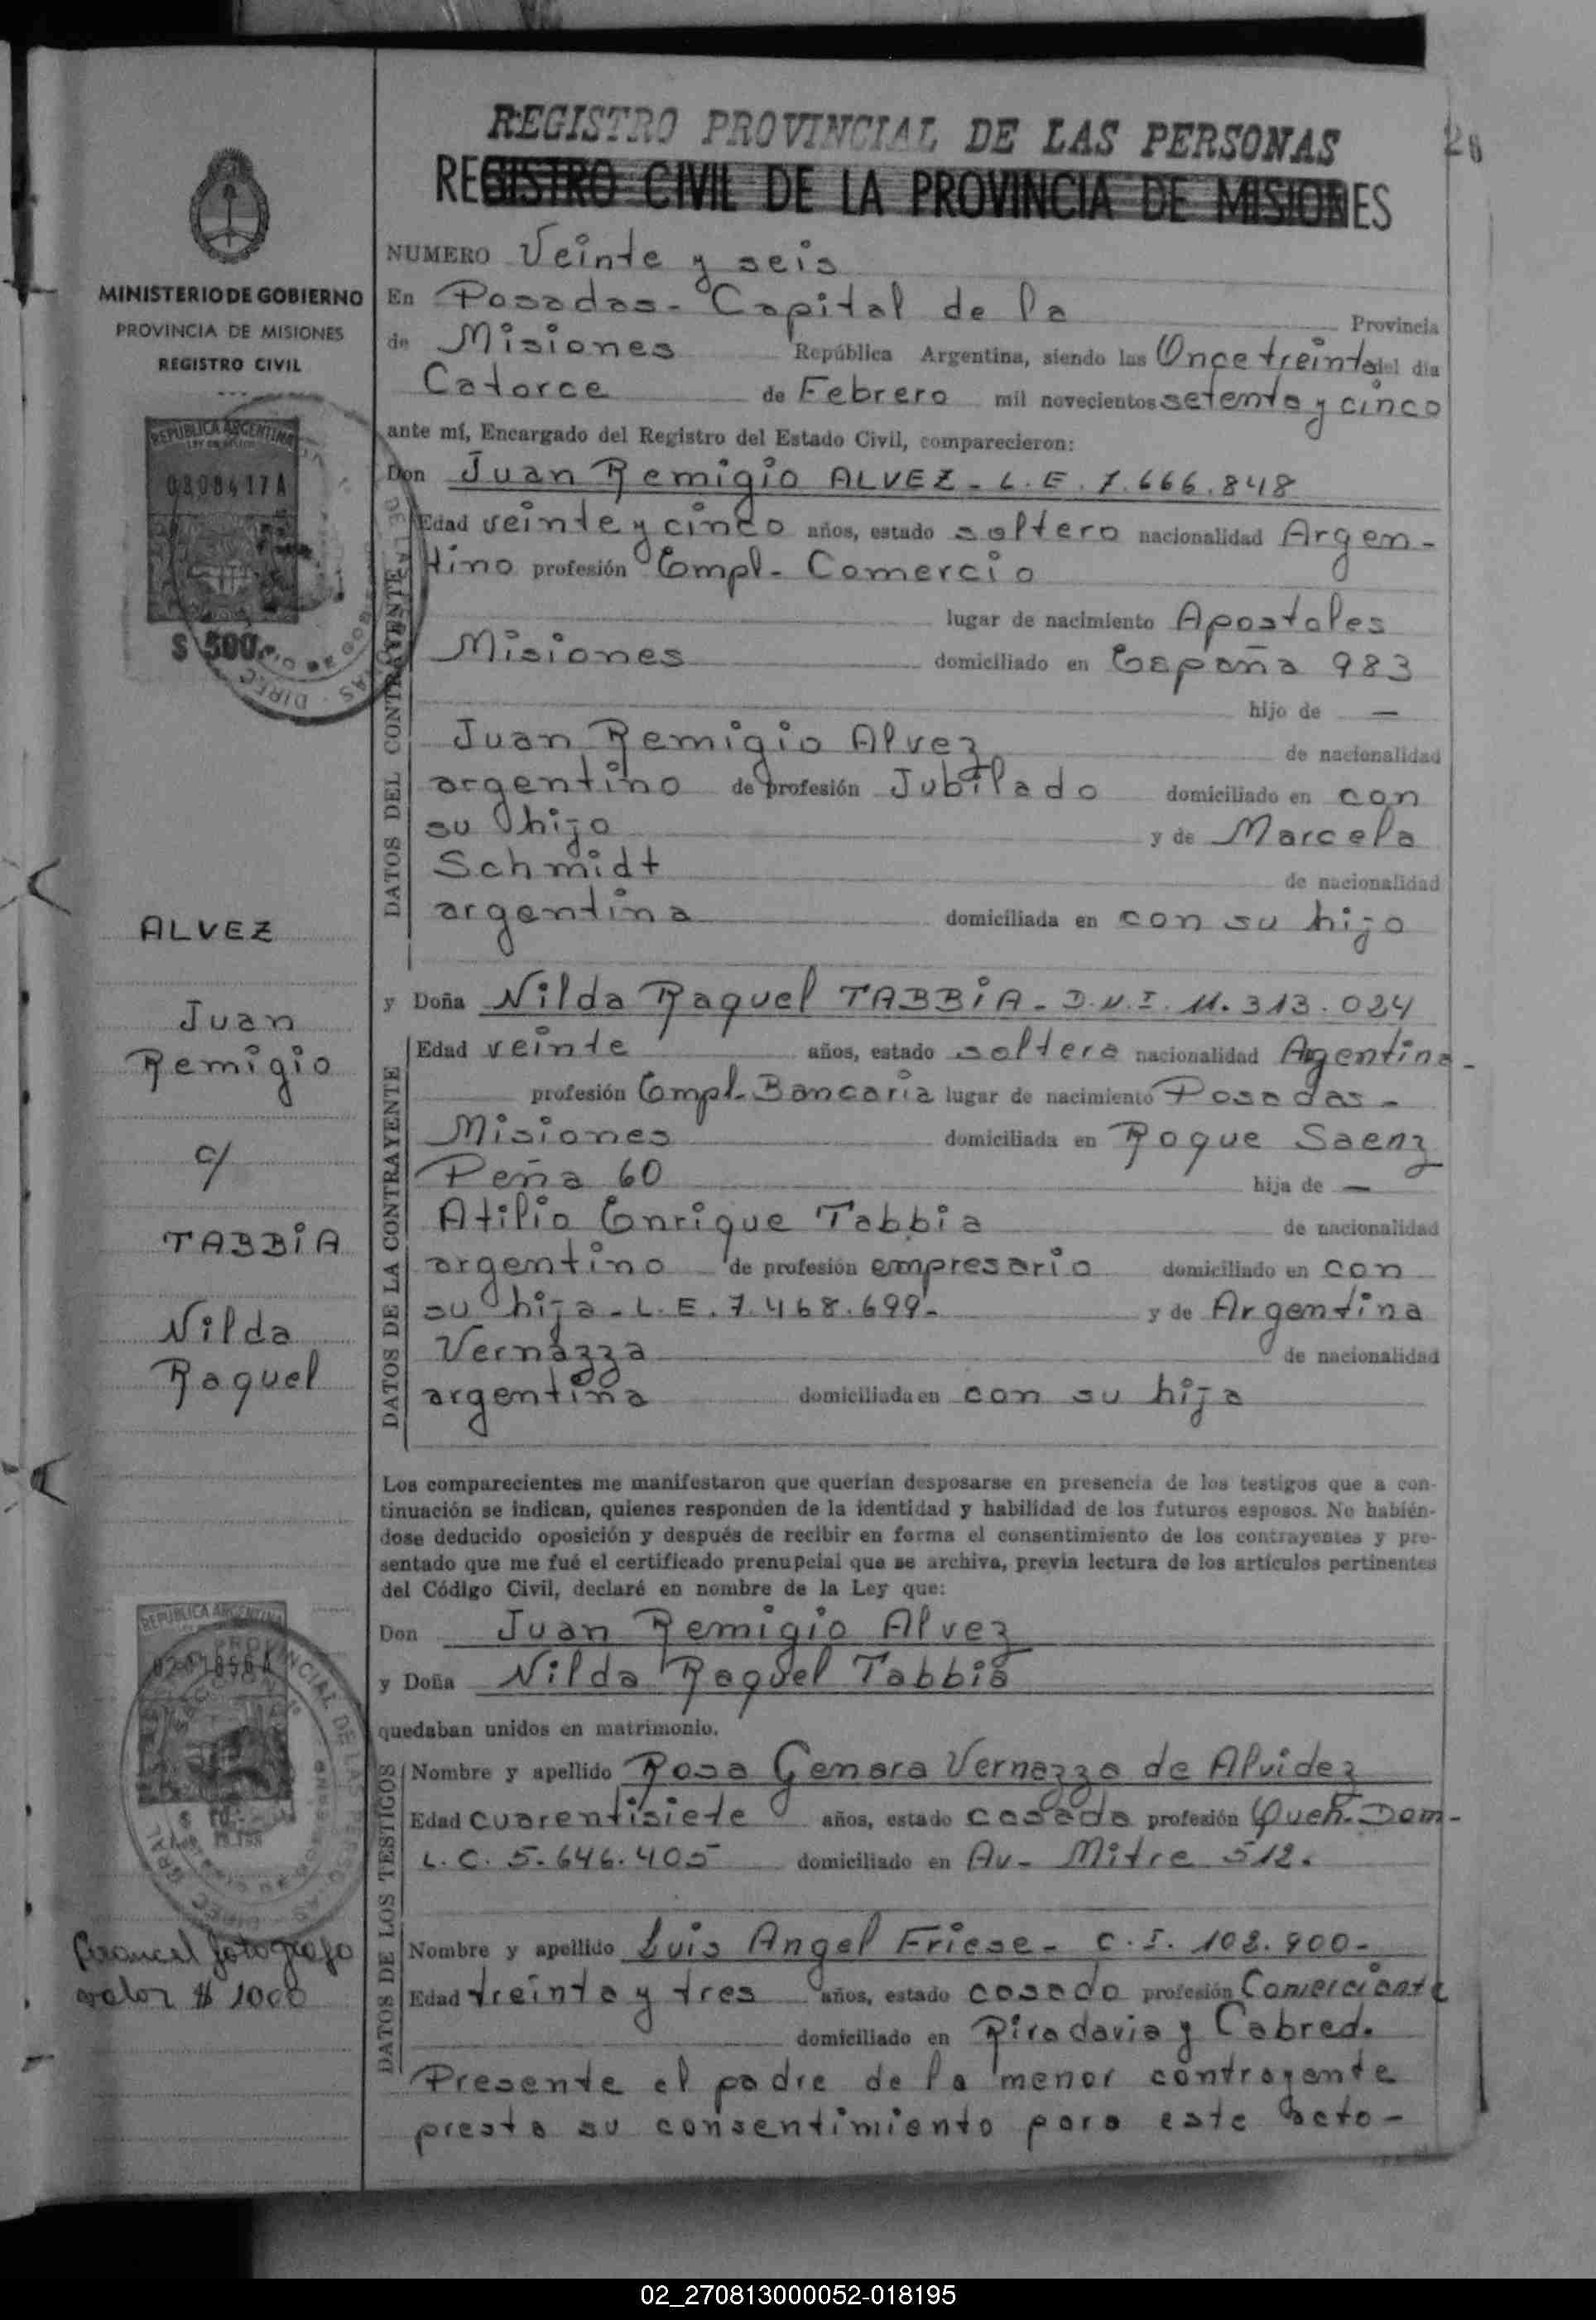 REGISTRO PROVINCIAL DE LAS PERSONAS
REGISTRO CIVIL DE LA PROVINCIA DE MISIONES
MINISTERIO DE GOBIERNO
PROVINCIA DE MISIONES
REGISTRO CIVIL
REPUBLICA ARGENTINA
$ 500
ALVEZ
Juan
Remigio
c/
TABBiA
Nilda
Raquel
REPUBLICA ARGENTINA
fotografo
valor $ 1000
NUMERO Veinte y seis
En Posadas - Capital de la Provincia
de Misiones República Argentina, siendo las Once treinta del día
Catorce de Febrero mil novecientos setenta y cinco
ante mí, Encargado del Registro del Estado Civil, comparecieron:
Don Juan Remigio ALVEZ - L. E. 7.666.848
DATOS DEL CONTRAYENTE
Edad veinte y cinco años, estado soltero nacionalidad Argen-
tino profesión Empl - Comercio
lugar de nacimiento Apostoles
Misiones domiciliado en España 983
hijo de —
Juan Remigio Alvez de nacionalidad
argentino de profesión Jubilado domiciliado en con
su hijo y de Marcela
Schmidt de nacionalidad
argentina domiciliada en con su hijo
y Doña Nilda Raquel TABBiA - D.N.I. 11.313.024
DATOS DE LA CONTRAYENTE
Edad veinte años, estado soltera nacionalidad Agentina -
profesión Empl. Bancaria lugar de nacimiento Posadas -
Misiones domiciliada en Roque Saenz
Peña 60 hija de —
Atilio Enrique Tabbia de nacionalidad
argentino de profesión empresario domiciliado en con
su hija - L. E. 7.468.699 - y de Argentina
Vernazza de nacionalidad
argentina domiciliada en con su hija
Los comparecientes me manifestaron que querían desposarse en presencia de los testigos que a con-
tinuación se indican, quienes responden de la identidad y habilidad de los futuros esposos. No habién-
dose deducido oposición y después de recibir en forma el consentimiento de los contrayentes y pre-
sentado que me fué el certificado prenupcial que se archiva, previa lectura de los artículos pertinentes
del Código Civil, declaré en nombre de la Ley que:
Don Juan Remigio Alvez
y Doña Nilda Raquel Tabbia
quedaban unidos en matrimonio.
DATOS DE LOS TESTIGOS
Nombre y apellido Rosa Genara Vernazza de Alvidez
Edad cuarentisiete años, estado casada profesión Queh. Dom -
L. C. 5.646.405 domiciliado en Av - Mitre 512.
Nombre y apellido Luis Angel Friese - C. I. 108.900 -
Edad treinta y tres años, estado casado profesión Comerciante
domiciliado en Rivadavia y Cabred.
Presente el padre de la menor contrayente
presta su consentimiento para este acto -
02_270813000052-018195